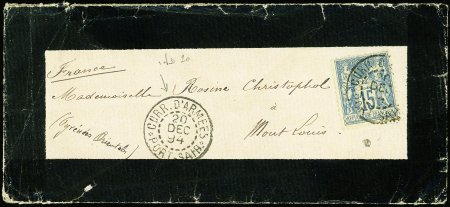 France
Mademoiselle Rosine Christophol
à
Mont Louis.
(Pyrénées Orientales)
CORR. D'ARMEES
20
DEC
94
PORT-SAID
15